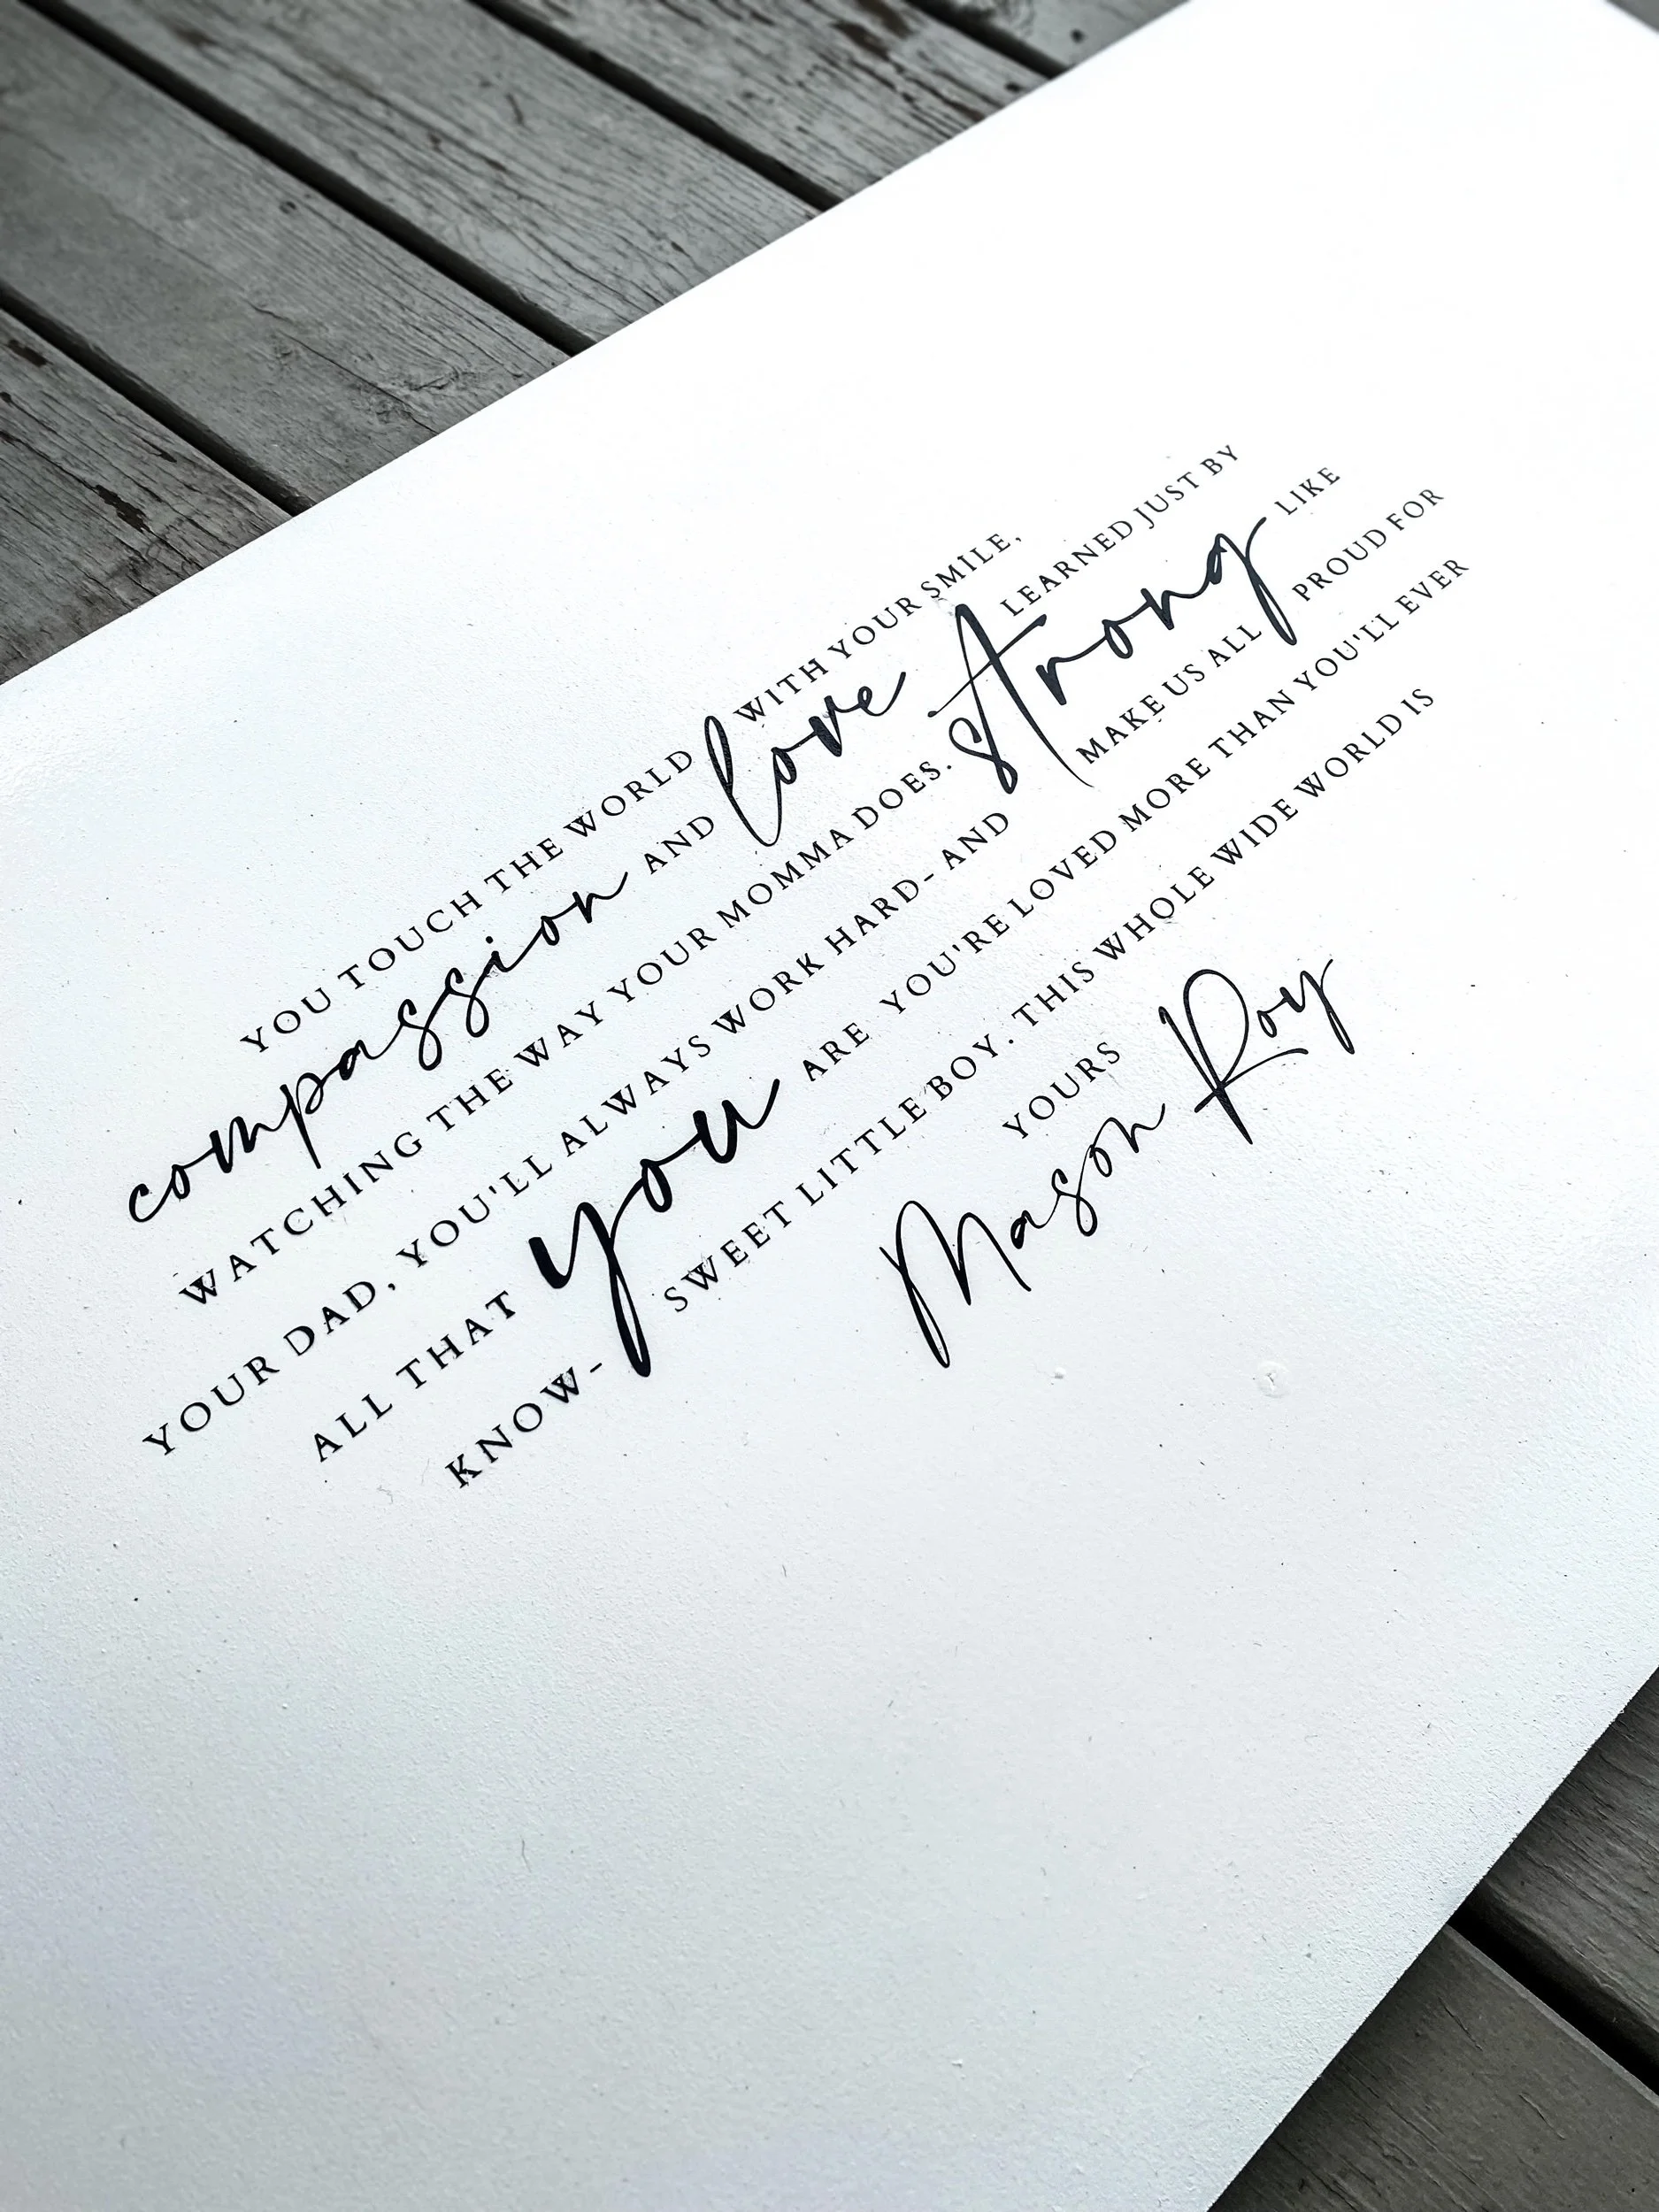 YOU TOUCH THE WORLD WITH YOUR SMILE,
compassion AND love LEARNED JUST BY
WATCHING THE WAY YOUR MOMMA DOES. strong LIKE
YOUR DAD, YOU'LL ALWAYS WORK HARD- AND MAKE US ALL PROUD FOR
ALL THAT you ARE YOU'RE LOVED MORE THAN YOU'LL EVER
KNOW- SWEET LITTLE BOY. THIS WHOLE WIDE WORLD IS
YOURS
Mason Roy